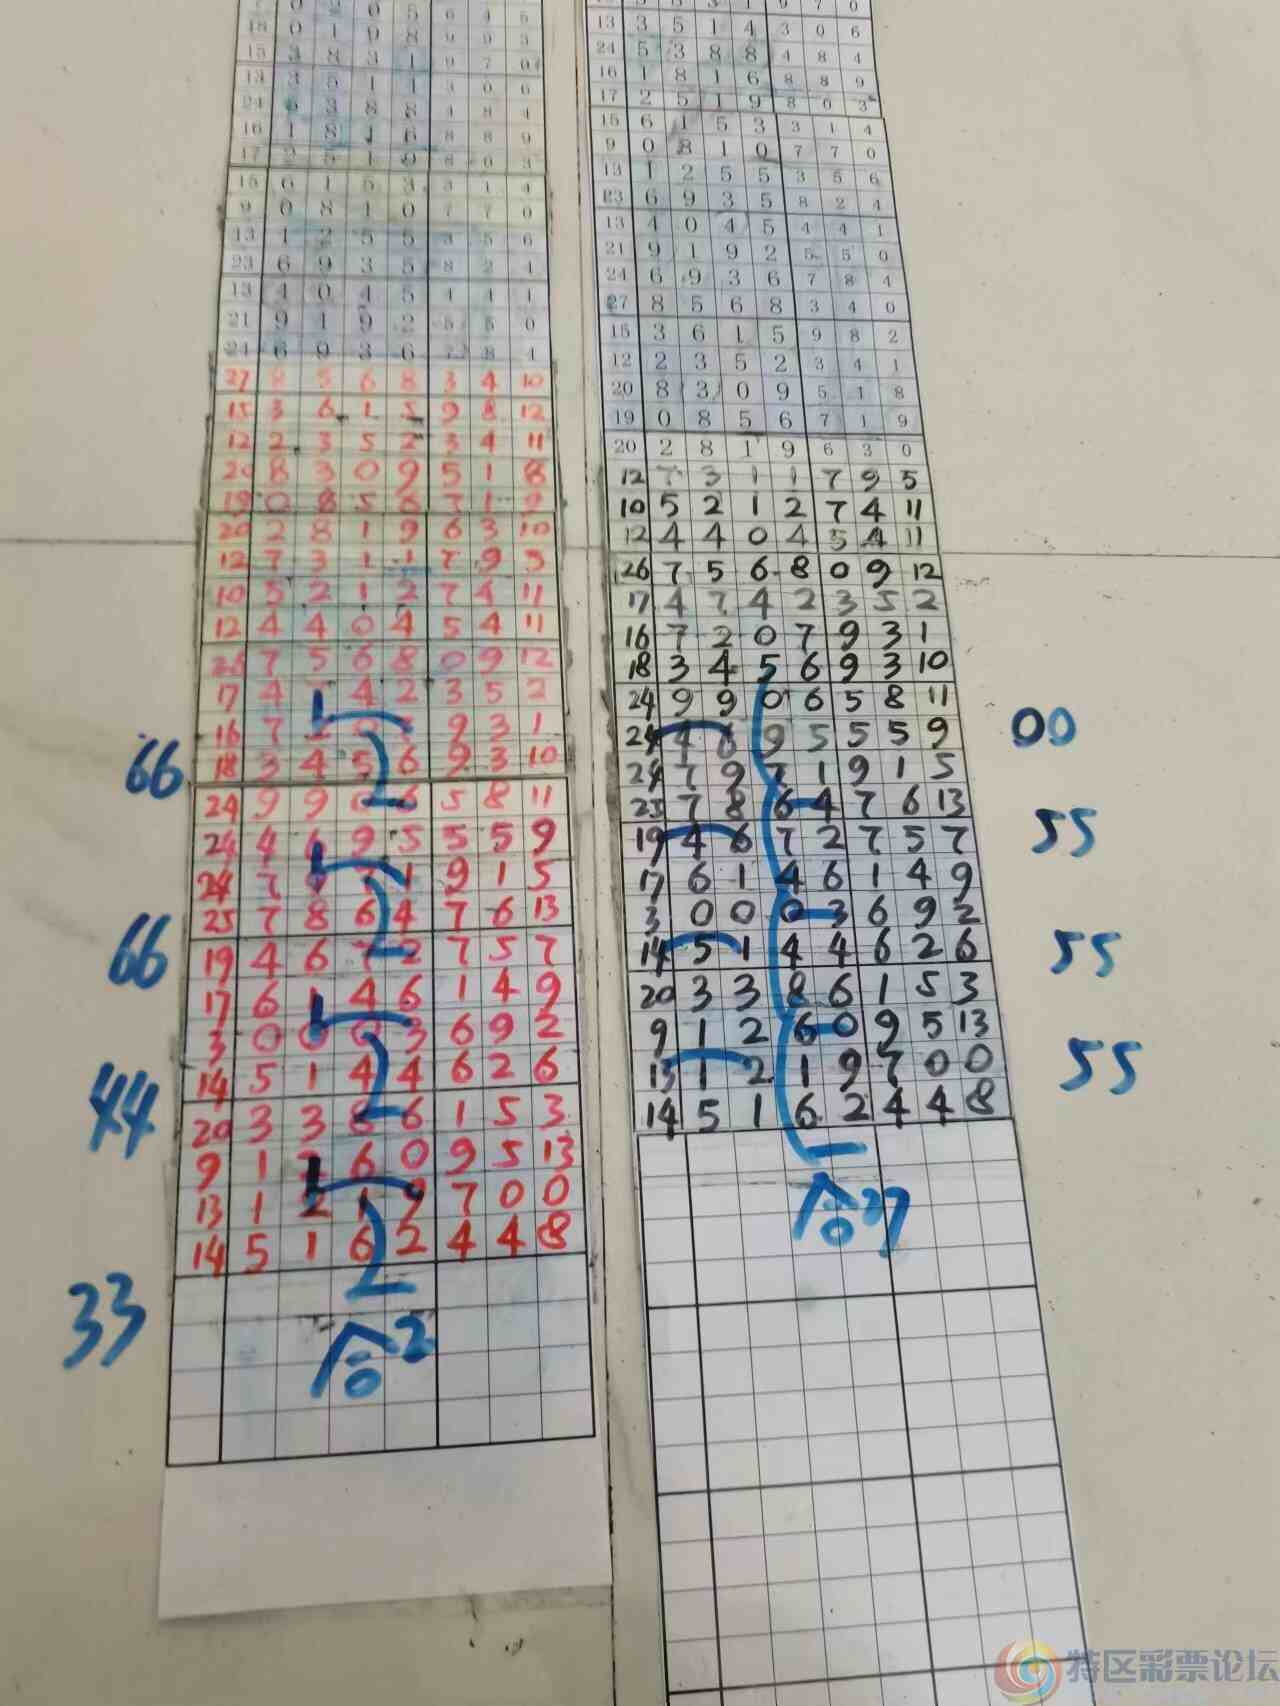 15 6 1 5 3 3 1 4
9 0 8 1 0 7 7 0
13 1 2 5 5 3 5 6
23 6 9 3 5 8 2 4
13 4 0 4 5 4 4 1
21 9 1 9 2 5 5 0
24 6 9 3 6 7 8 4
27 8 5 6 8 3 4 10
15 3 6 1 5 9 8 12
12 2 3 5 2 3 4 11
20 8 3 0 9 5 1 8
19 0 8 5 6 7 1 9
20 2 8 1 9 6 3 10
12 7 3 1 1 7 9 5
10 5 2 1 2 7 4 11
12 4 4 0 4 5 4 11
26 7 5 6 8 0 9 12
17 4 4 2 3 5 2
16 7 9 3 1
18 3 4 5 6 9 3 10
66
24 9 9 6 5 8 11
24 4 6 9 5 5 5 9
24 7 1 9 1 5
25 7 8 6 4 7 6 13
66
19 4 6 7 2 7 5 7
17 6 1 4 6 1 4 9
3 0 0 0 3 6 9 2
14 5 1 4 4 6 2 6
44
20 3 3 8 6 1 5 3
9 1 6 0 9 5 13
13 1 2 1 9 7 0 0
14 5 1 6 2 4 4 8
33
合2
13 3 5 1 4 3 0 6
24 5 3 8 8 4 8 4
16 1 8 1 6 8 8 9
17 2 5 1 9 8 0 3
15 6 1 5 3 3 1 4
9 0 8 1 0 7 7 0
13 1 2 5 5 3 5 6
23 6 9 3 5 8 2 4
13 4 0 4 5 4 4 1
21 9 1 9 2 5 5 0
24 6 9 3 6 7 8 4
27 8 5 6 8 3 4 0
15 3 6 1 5 9 8 2
12 2 3 5 2 3 4 1
20 8 3 0 9 5 1 8
19 0 8 5 6 7 1 9
20 2 8 1 9 6 3 0
12 7 3 1 1 7 9 5
10 5 2 1 2 7 4 11
12 4 4 0 4 5 4 11
26 7 5 6 8 0 9 12
17 4 7 4 2 3 5 2
16 7 2 0 7 9 3 1
18 3 4 5 6 9 3 10
24 9 9 0 6 5 8 11
24 4 6 9 5 5 5 9
00
24 7 9 7 1 9 1 5
25 7 8 6 4 7 6 13
55
19 4 6 7 2 7 5 7
17 6 1 4 6 1 4 9
3 0 0 0 3 6 9 2
14 5 1 4 4 6 2 6
55
20 3 3 8 6 1 5 3
9 1 2 6 0 9 5 13
13 1 2 1 9 7 0 0
55
14 5 1 6 2 4 4 8
合27
特区彩票论坛